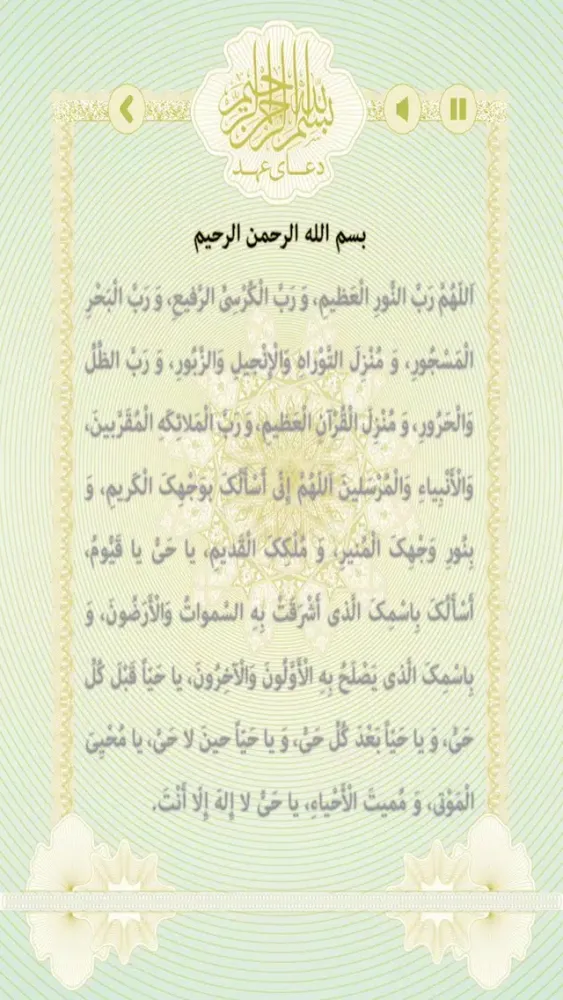 بسم الله الرحمن الرحیم
دعـــای عهـد
بسم الله الرحمن الرحیم
اَللَهُمَّ رَبَّ النُّورِ الْعَظیمِ، وَ رَبَّ الْکُرْسِیِّ الرَّفیعِ، وَ رَبَّ الْبَحْرِ
الْمَسْجُورِ، وَ مُنْزِلَ التَّوْراهِ وَالْإِنْجیلِ وَالزَّبُورِ، وَ رَبَّ الظِّلِّ
وَالْحَرُورِ، وَ مُنْزِلَ الْقُرْآنِ الْعَظیمِ، وَ رَبَّ الْمَلائِکَهِ الْمُقَرَّبینَ،
وَالْأَنْبِیاءِ وَالْمُرْسَلینَ اَللَهُمَّ إِنّی أَسْأَلُکَ بِوَجْهِکَ الْکَریمِ، وَ
بِنُورِ وَجْهِکَ الْمُنیرِ، وَ مُلْکِکَ الْقَدیمِ، یا حَیُّ یا قَیُّومُ،
أَسْأَلُکَ بِاسْمِکَ الَّذی أَشْرَقَتْ بِهِ السَّمواتُ وَالْأَرَضُونَ، وَ
بِاسْمِکَ الَّذی یَصْلَحُ بِهِ الْأَوَّلُونَ وَالْآخِرُونَ، یا حَیّاً قَبْلَ کُلِّ
حَیٍّ، وَ یا حَیّاً بَعْدَ کُلِّ حَیٍّ، وَ یا حَیّاً حینَ لا حَیُّ، یا مُحْیِیَ
الْمَوْتی، وَ مُمیتَ الْأَحْیاءِ، یا حَیُّ لا إِلهَ إِلّا أَنْتَ.